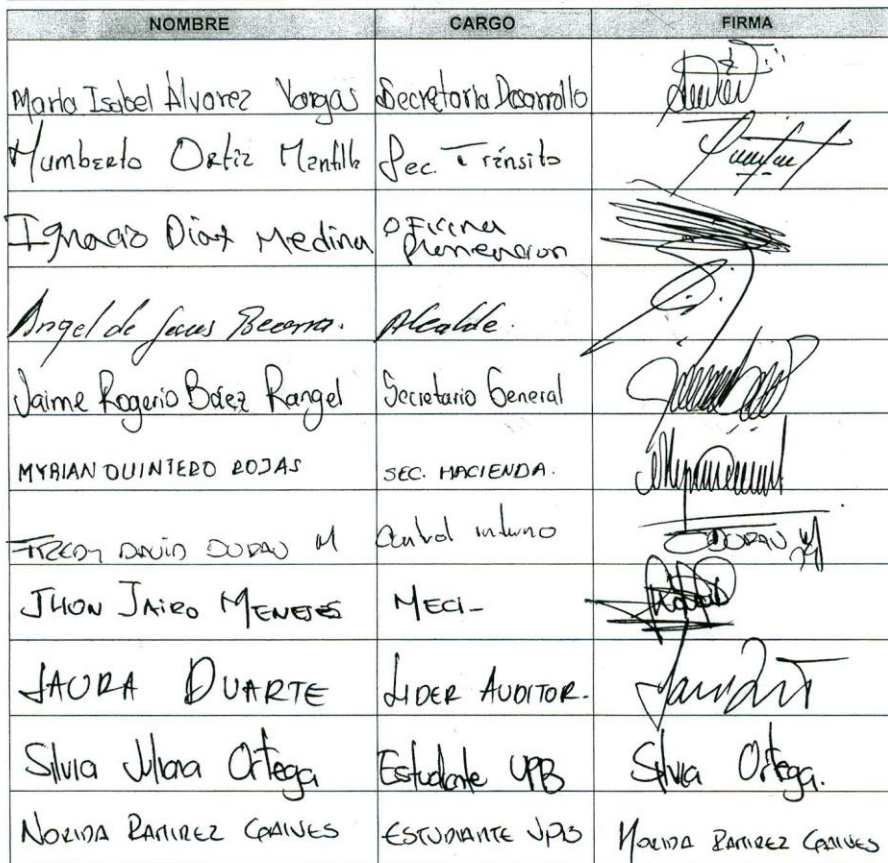 NOMBRE CARGO FIRMA
Maria Isabel Alvarez Vargas Secretaria Desarrollo
Humberto Ortiz Mantilla Sec. Tránsito
Ignacio Diaz Medina Oficina
Planeacion
Angel de Jesus Becerra. Alcalde.
Jaime Rogerio Báez Rangel Secretario General
MYRIAN QUINTERO ROJAS SEC. HACIENDA.
FREDY DAVID DURAN M Control interno DURAN
JHON JAIRO MENESES MECI-
LAURA DUARTE LIDER AUDITOR.
Silvia Juliana Ortega Estudiante UPB Silvia Ortega.
NORIDA RAMIREZ ESTUDIANTE UPB NORIDA RAMIREZ